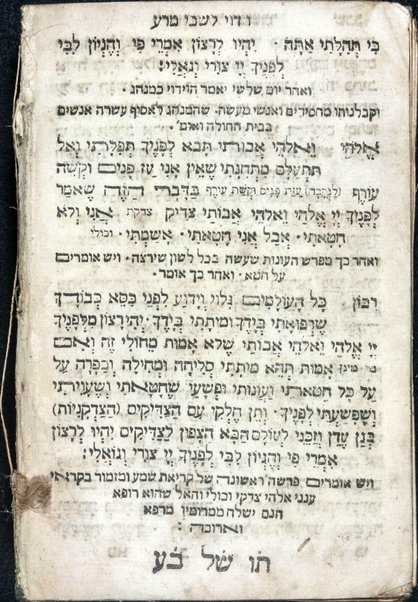 וידוי לשכבי מרע
כי תהלתי אתה׃ יהיו לרצון אמרי פי והגיון לבי
לפניך יי צורי וגואלי׃
ואחר יום שלישי יאמר הוידוי כמנהג
וקבלנוהו מחסידים ואנשי מעשה׃ שהמנהג לאסוף עשרה אנשים
בבית החולה ואומ׳
אלהי ואלהי אבותי תבא לפניך תפלתי ואל
תתעלם מתחנתי שאין אני עז פנים וקשה
עורף (לנקבה) עזת פנים וקשת עורף בדבר הזה שאמר
לפניך יי אלהי ואלהי אבותי צדיק צדקת אני ולא
חטאתי׃ אבל אני חטאתי׃ אשמתי׃ וכולי
ואחר כך מפרש העונות שעשה בכל לשון שירצה׃ ויש אומרים
על חטא׃ ואחר כך אומר׃
רבון כל העולמים גלוי וידוע לפני כסא כבודך
שרפואתי בידך ומותתי בידך׃ יהי רצון מלפניך
יי אלהי ואלהי אבותי שלא אמות מחולי זה ואם
אמות תהא מותתי סליחה ומחילה׃ וכפרה על
על כל חטאתי ועונותי ופשעי שחטאתי ושעויתי
ושפשעתי לפניך׃ ותן חלקי עם הצדיקים (הצדקניות)
בגן עדן וזכני לעולם הבא הצפון לצדיקים יהיו לרצון
אמרי פי והגיון לבי לפניך יי צורי וגואלי׃
ויש אומרים פרשה ראשונה של קריאת שמע ומזמור בקראי
ענני אלהי צדקי וכולי והאל שהוא רופא
חנם ישלח ממרומיו מרפא
וארוכה׃
תו של בע